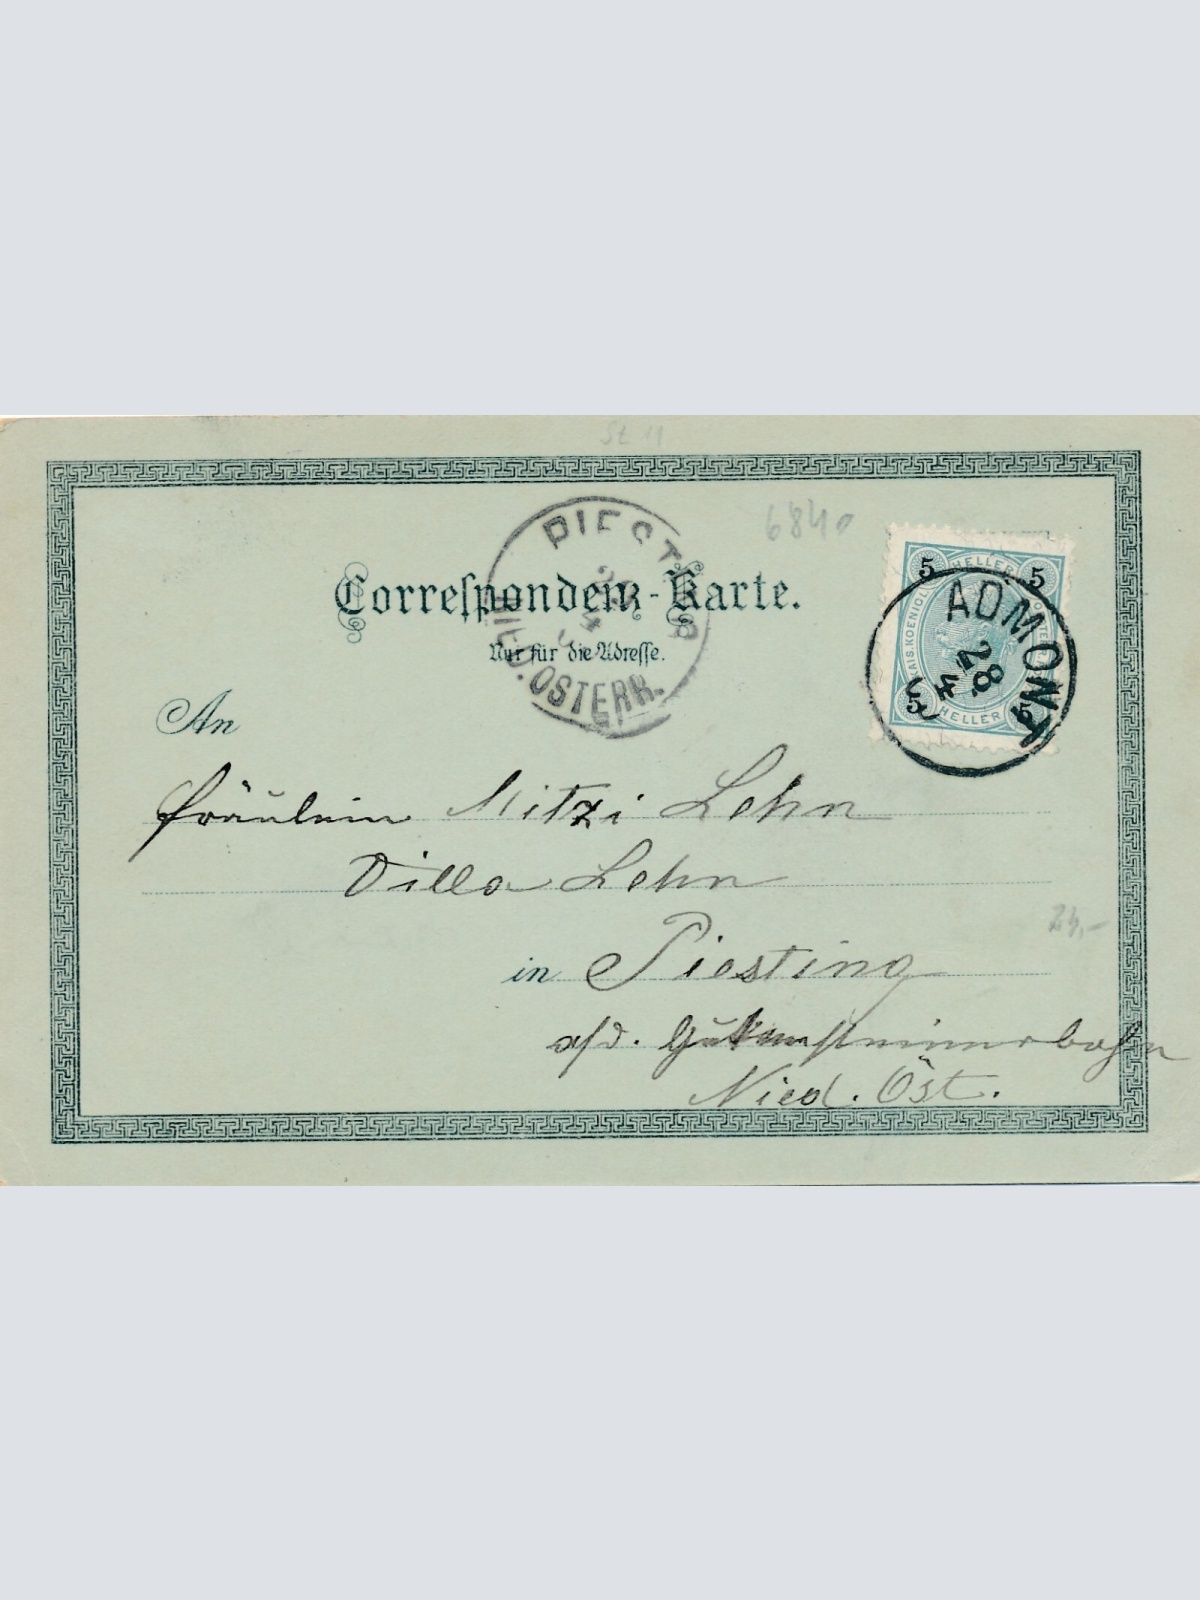 St 11
6840
PIESTING
28
4
NIED.ÖSTERR.
Correspondenz-Karte.
Nur für die Adresse.
5 HELLER 5
KAIS.KOENIGL.
5 HELLER 5
ADMONT
28.
4
An
Fräulein Mitzi Lehn
Villa Lehn
in Piesting
a/d. Gutensteinerbahn
Nied. Öst.
24,-